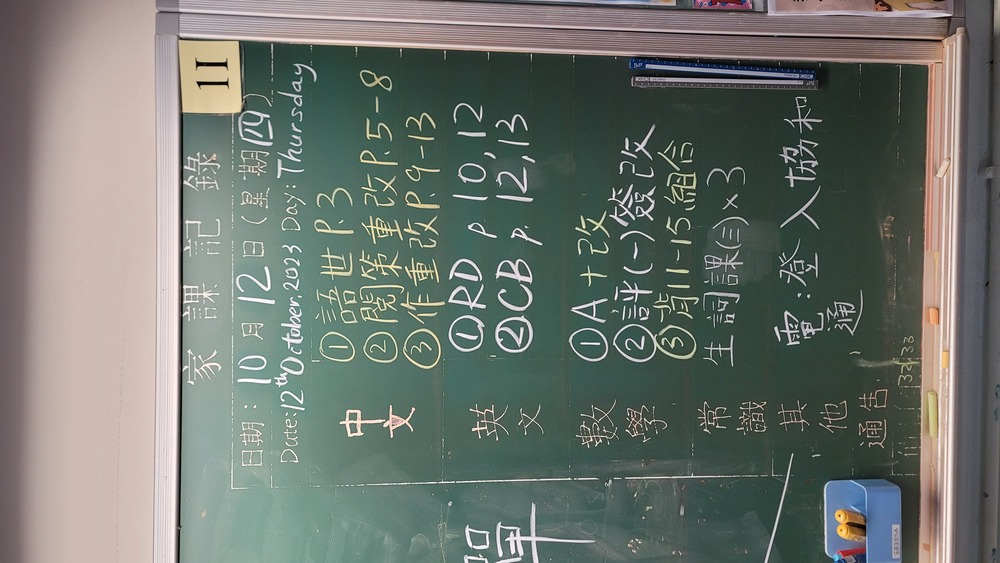 11
家課記錄
日期：10月12日(星期四)
Date:12th October,2023 Day:Thursday
中文
①語世P.3
②閱策重改P.5-8
③作重改P.9-13
英文
①RD p 10,12
②CB p. 12,13
數學
①A+改
②評(一)簽改
③背11-15組合
常識
生詞課(三)×3
其他
電:登入協和
通
通告
32 33